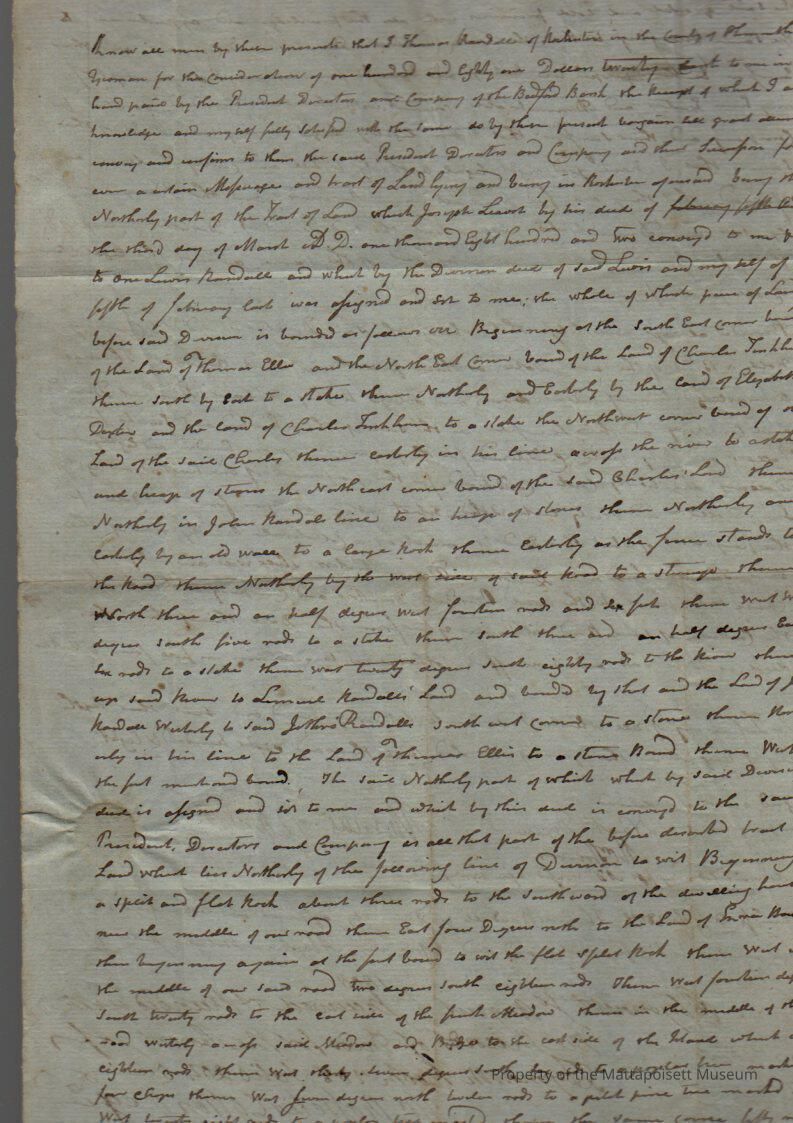 Know all men by these presents that I Thomas Randall of Rochester in the County of Plymouth
Yeoman for the Consideration of one hundred and Eighty one Dollars twenty to me in
hand paid by the President Directors and Company of the Bedford Bank the receipt of which I
knowledge and my self fully satisfied with the same do by these present bargain sell grant
convey and confirm to them the said President Directors and Company and their Successors
ever a certain Messuage and tract of Land lying and being in Rochester aforesaid being
Northerly part of the Tract of Land which Joseph Leavit by his deed of
the third day of March A.D. one thousand Eight hundred and two convey'd to me
to one Lewis Randall and which by the Division deed of said Lewis and my self of
fifth of February last was assigned and set to me; the whole of which piece of Land
before said Division is bounded as follows viz Beginning at the South East corner
of the Land of Thomas Ellis and the North East Corner bound of the Land of Charles
thence south by East to a stake thence Northerly and Easterly by the land of Elizabeth
Dexter and the land of Charles to a stake the Northwest corner bound of
Land of the said Charles thence easterly in his line across the river to a stake
and heap of stones the North east corner bound of the said Charles' Land thence
Northerly in John Randals line to an heap of stones thence Northerly and
Easterly by an old wall to a large Rock thence Easterly as the fence stands to
the Road thence Northerly by the west side of said Road to a thence
North three and an half degrees west fourteen rods and six feet thence West
degrees south five rods to a stake thence South three and an half degrees East
six rods to a stake thence west twenty degrees south eighty rods to the River thence
up said River to Lemuel Randalls Land and bounded by that and the Land of
Randall Westerly to said Jethro Randalls south east corner to a stone thence
erly in his line to the Land of Thomas Ellis to a stone Bound thence West
the first mentioned bound. The said Northerly part of which what by said Division
deed is assigned and set to me and which by this deed is convey'd to the said
President, Directors and Company is all that part of the before described tract
Land which lies Northerly of the following line of Division to wit Beginning
a split and flat Rock about three rods to the southward of the dwelling house
near the middle of our road thence East four Degrees north to the Land of
then beginning again at the first bound to wit the flat split Rock thence West
the middle of our said road two degrees south eighteen rods Thence West fourteen
south twenty rods to the east side of the fresh Meadow thence in the middle of the
road westerly across said Meadow and Bridge to the east side of the Island
eighteen rods thence West degrees south
four chops thence West degrees north twelve rods to a pitch pine tree marked
West twenty eight rods to a thence the same course fifty
Property of the Mattapoisett Museum